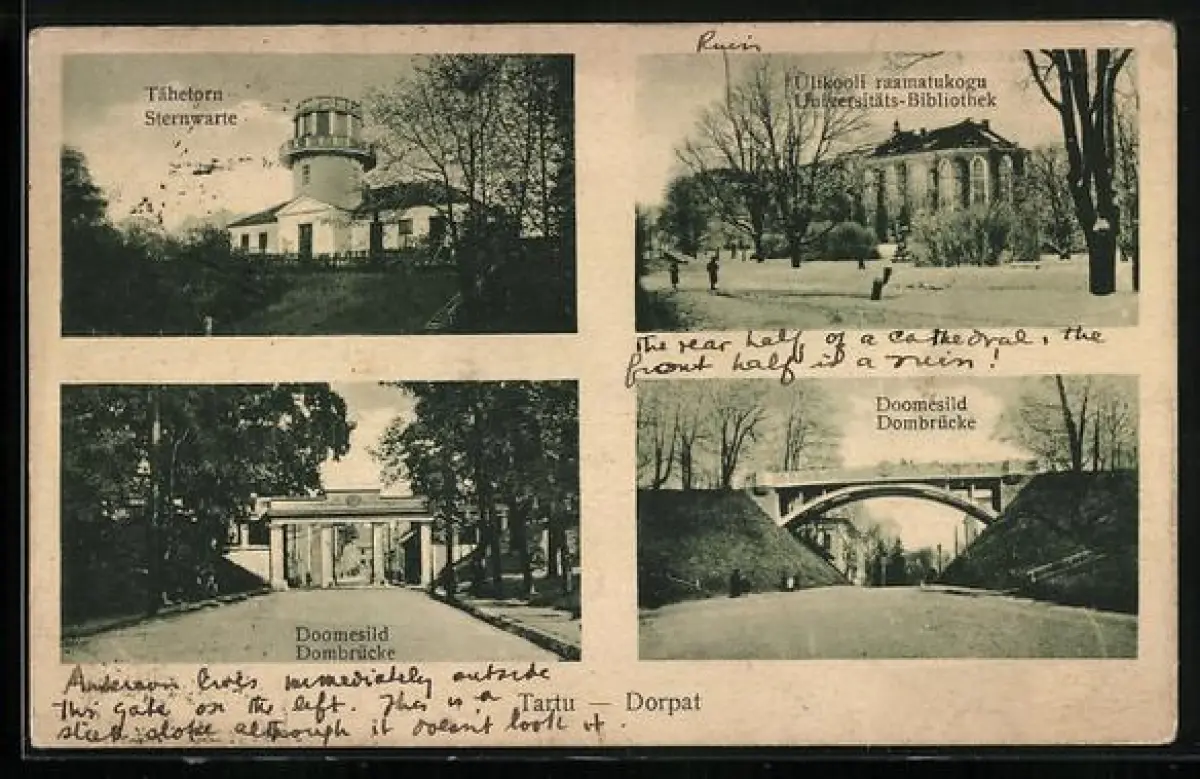 Ruin
Tähetorn
Sternwarte
Ülikooli raamatukogu
Universitäts-Bibliothek
The rear half of a cathedral, the
front half is a ruin!
Doomesild
Dombrücke
Doomesild
Dombrücke
lives immediately outside
this gate on the left. This is a
slope although it doesn't look it.
Tartu — Dorpat